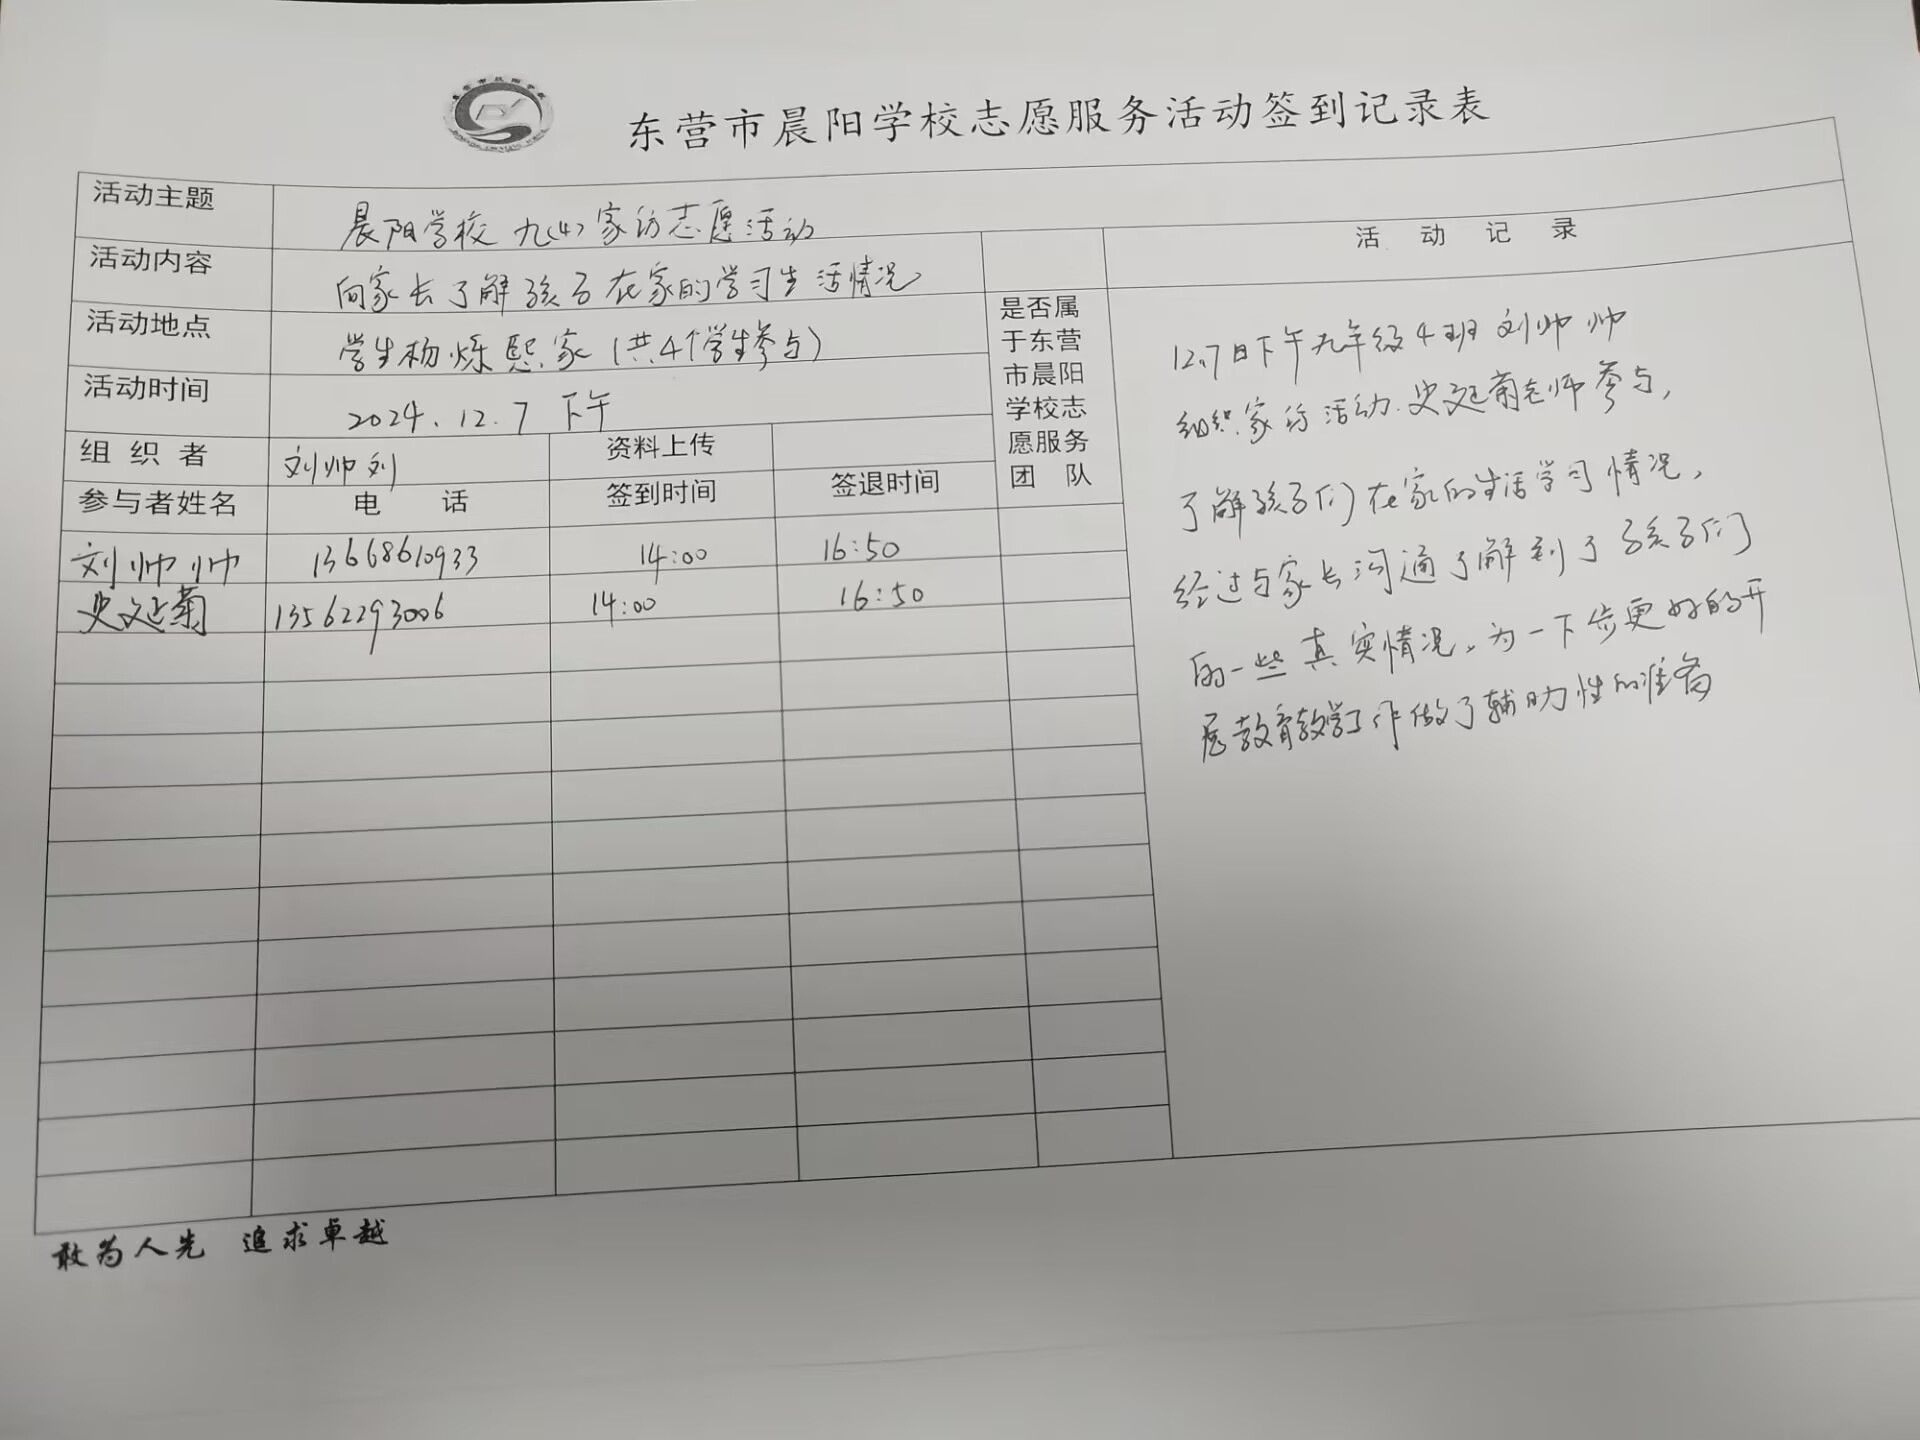 东营市晨阳学校志愿服务活动签到记录表
活动主题 晨阳学校 九(4)家访志愿活动
活动内容 向家长了解孩子在家的学习生活情况
活动记录
活动地点 学生杨烁熙家(共4个学生参与)
活动时间 2024.12.7 下午
是否属
于东营
市晨阳
学校志
愿服务
团队
组织者 刘帅刘 资料上传
参与者姓名 电话 签到时间 签退时间
刘帅帅 13668610933 14:00 16:50
史延菊 13562293006 14:00 16:50
12.7日下午九年级4班刘帅帅
组织家访活动.史延菊老师参与,
了解孩子们在家的生活学习情况,
经过与家长沟通了解到了孩子们
的一些真实情况。为一下步更好的开
展教育教学工作做了辅助性的准备
敢为人先 追求卓越